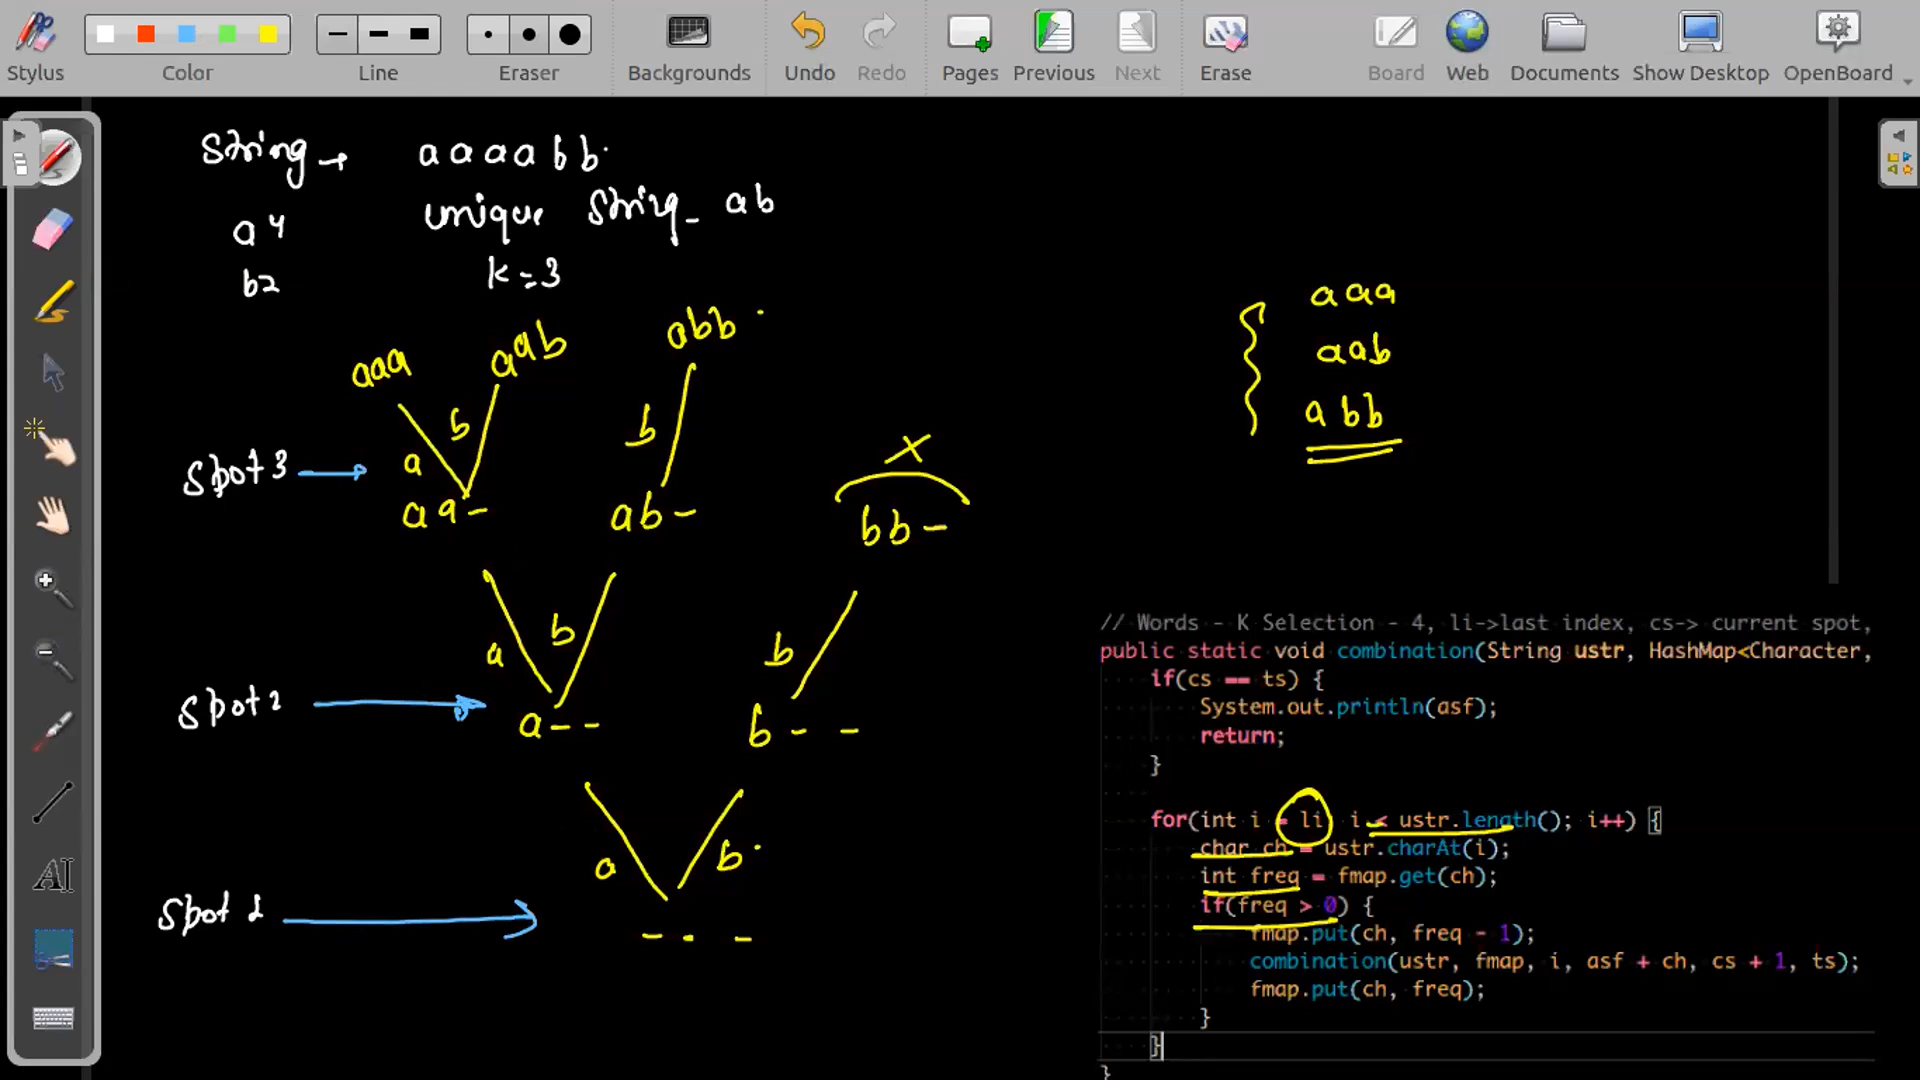 Stylus
Color
Line
Eraser
Backgrounds
Undo
Redo
Pages
Previous
Next
Erase
Board
Web
Documents
Show Desktop
OpenBoard
String → a a a a b b
a 4 unique String - ab
b 2 k = 3
aaa aab abb
a b b X
Spot 3 → aa- ab- bb-
a b b
Spot 2 → a-- b--
a b
Spot 1 → ---
aaa
aab
abb
// Words - K Selection - 4, li->last index, cs-> current spot,
public static void combination(String ustr, HashMap<Character,
if(cs == ts) {
System.out.println(asf);
return;
}
for(int i = li; i < ustr.length(); i++) {
char ch = ustr.charAt(i);
int freq = fmap.get(ch);
if(freq > 0) {
fmap.put(ch, freq - 1);
combination(ustr, fmap, i, asf + ch, cs + 1, ts);
fmap.put(ch, freq);
}
}
}